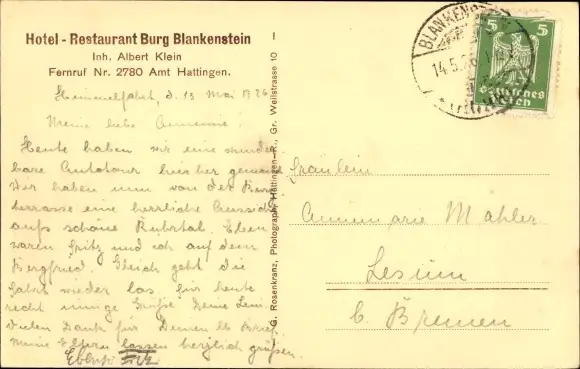 Hotel - Restaurant Burg Blankenstein
Inh. Albert Klein
Fernruf Nr. 2780 Amt Hattingen.
Himmelfahrt, d. 13 Mai 1926
Meine liebe Annemie!
Heute haben wir eine wunder
bare Autotour hierher gemacht
Wir haben nun von der Burg
terrasse eine herrliche Aussicht
aufs schöne Ruhrtal. Eben
waren Fritz und ich auf dem
Bergfried. Gleich geht die
Fahrt wieder los, für heute
recht innige Grüße Deine Leni
Vielen Dank für Deinen lb Brief.
Meine Eltern lassen herzlich grüßen.
Ebenso Fritz
G. Rosenkranz, Photograph, Hattingen-R., Gr. Weilstrasse 10
BLANKENST
14.5.26
5 5
Deutsches
Reich
Fräulein
Annemarie Mahler
Lesum
b. Bremen